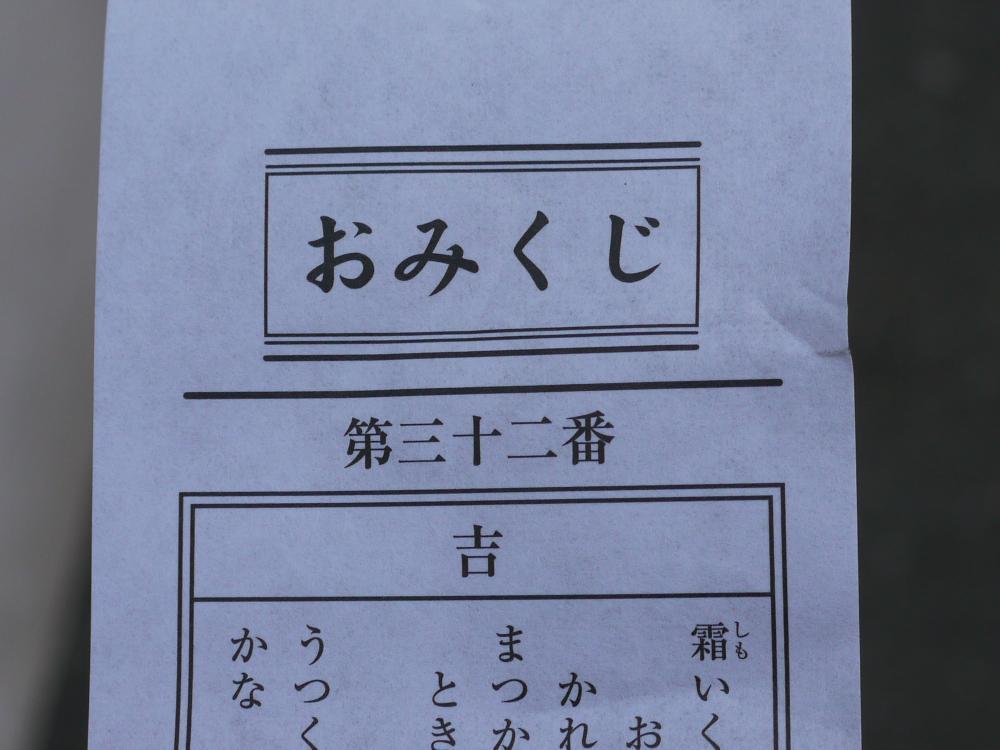 おみくじ
第三十二番
吉
霜しもいく
お
かれ
まつか
とき
うつく
かな